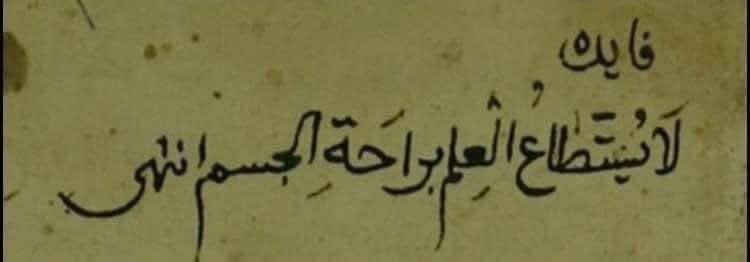 فايده
لَا يُسْتَطَاعُ الْعِلم براحَةِ الجسم انتهى